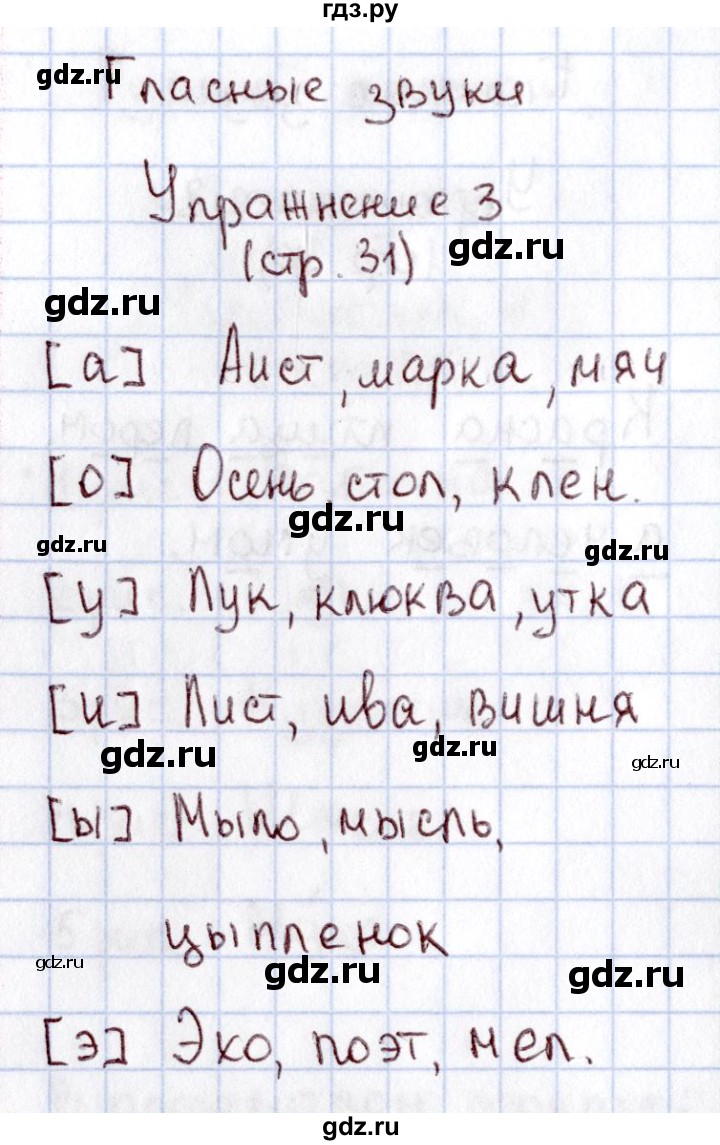 гдз.ру
gdz.ru
Гласные звуки
Упражнение 3
(стр. 31)
gdz.ru
gdz.ru
[а] Аист, марка, мяч
[о] Осень, стол, клен.
gdz.ru
gdz.ru
gdz.ru
[у] Лук, клюква, утка
[и] Лист, ива, вишня
gdz.ru
gdz.ru
gdz.ru
[ы] Мыло, мысль,
цыпленок
gdz.ru
gdz.ru
gdz.ru
[э] Эхо, поэт, мел.
gdz.ru